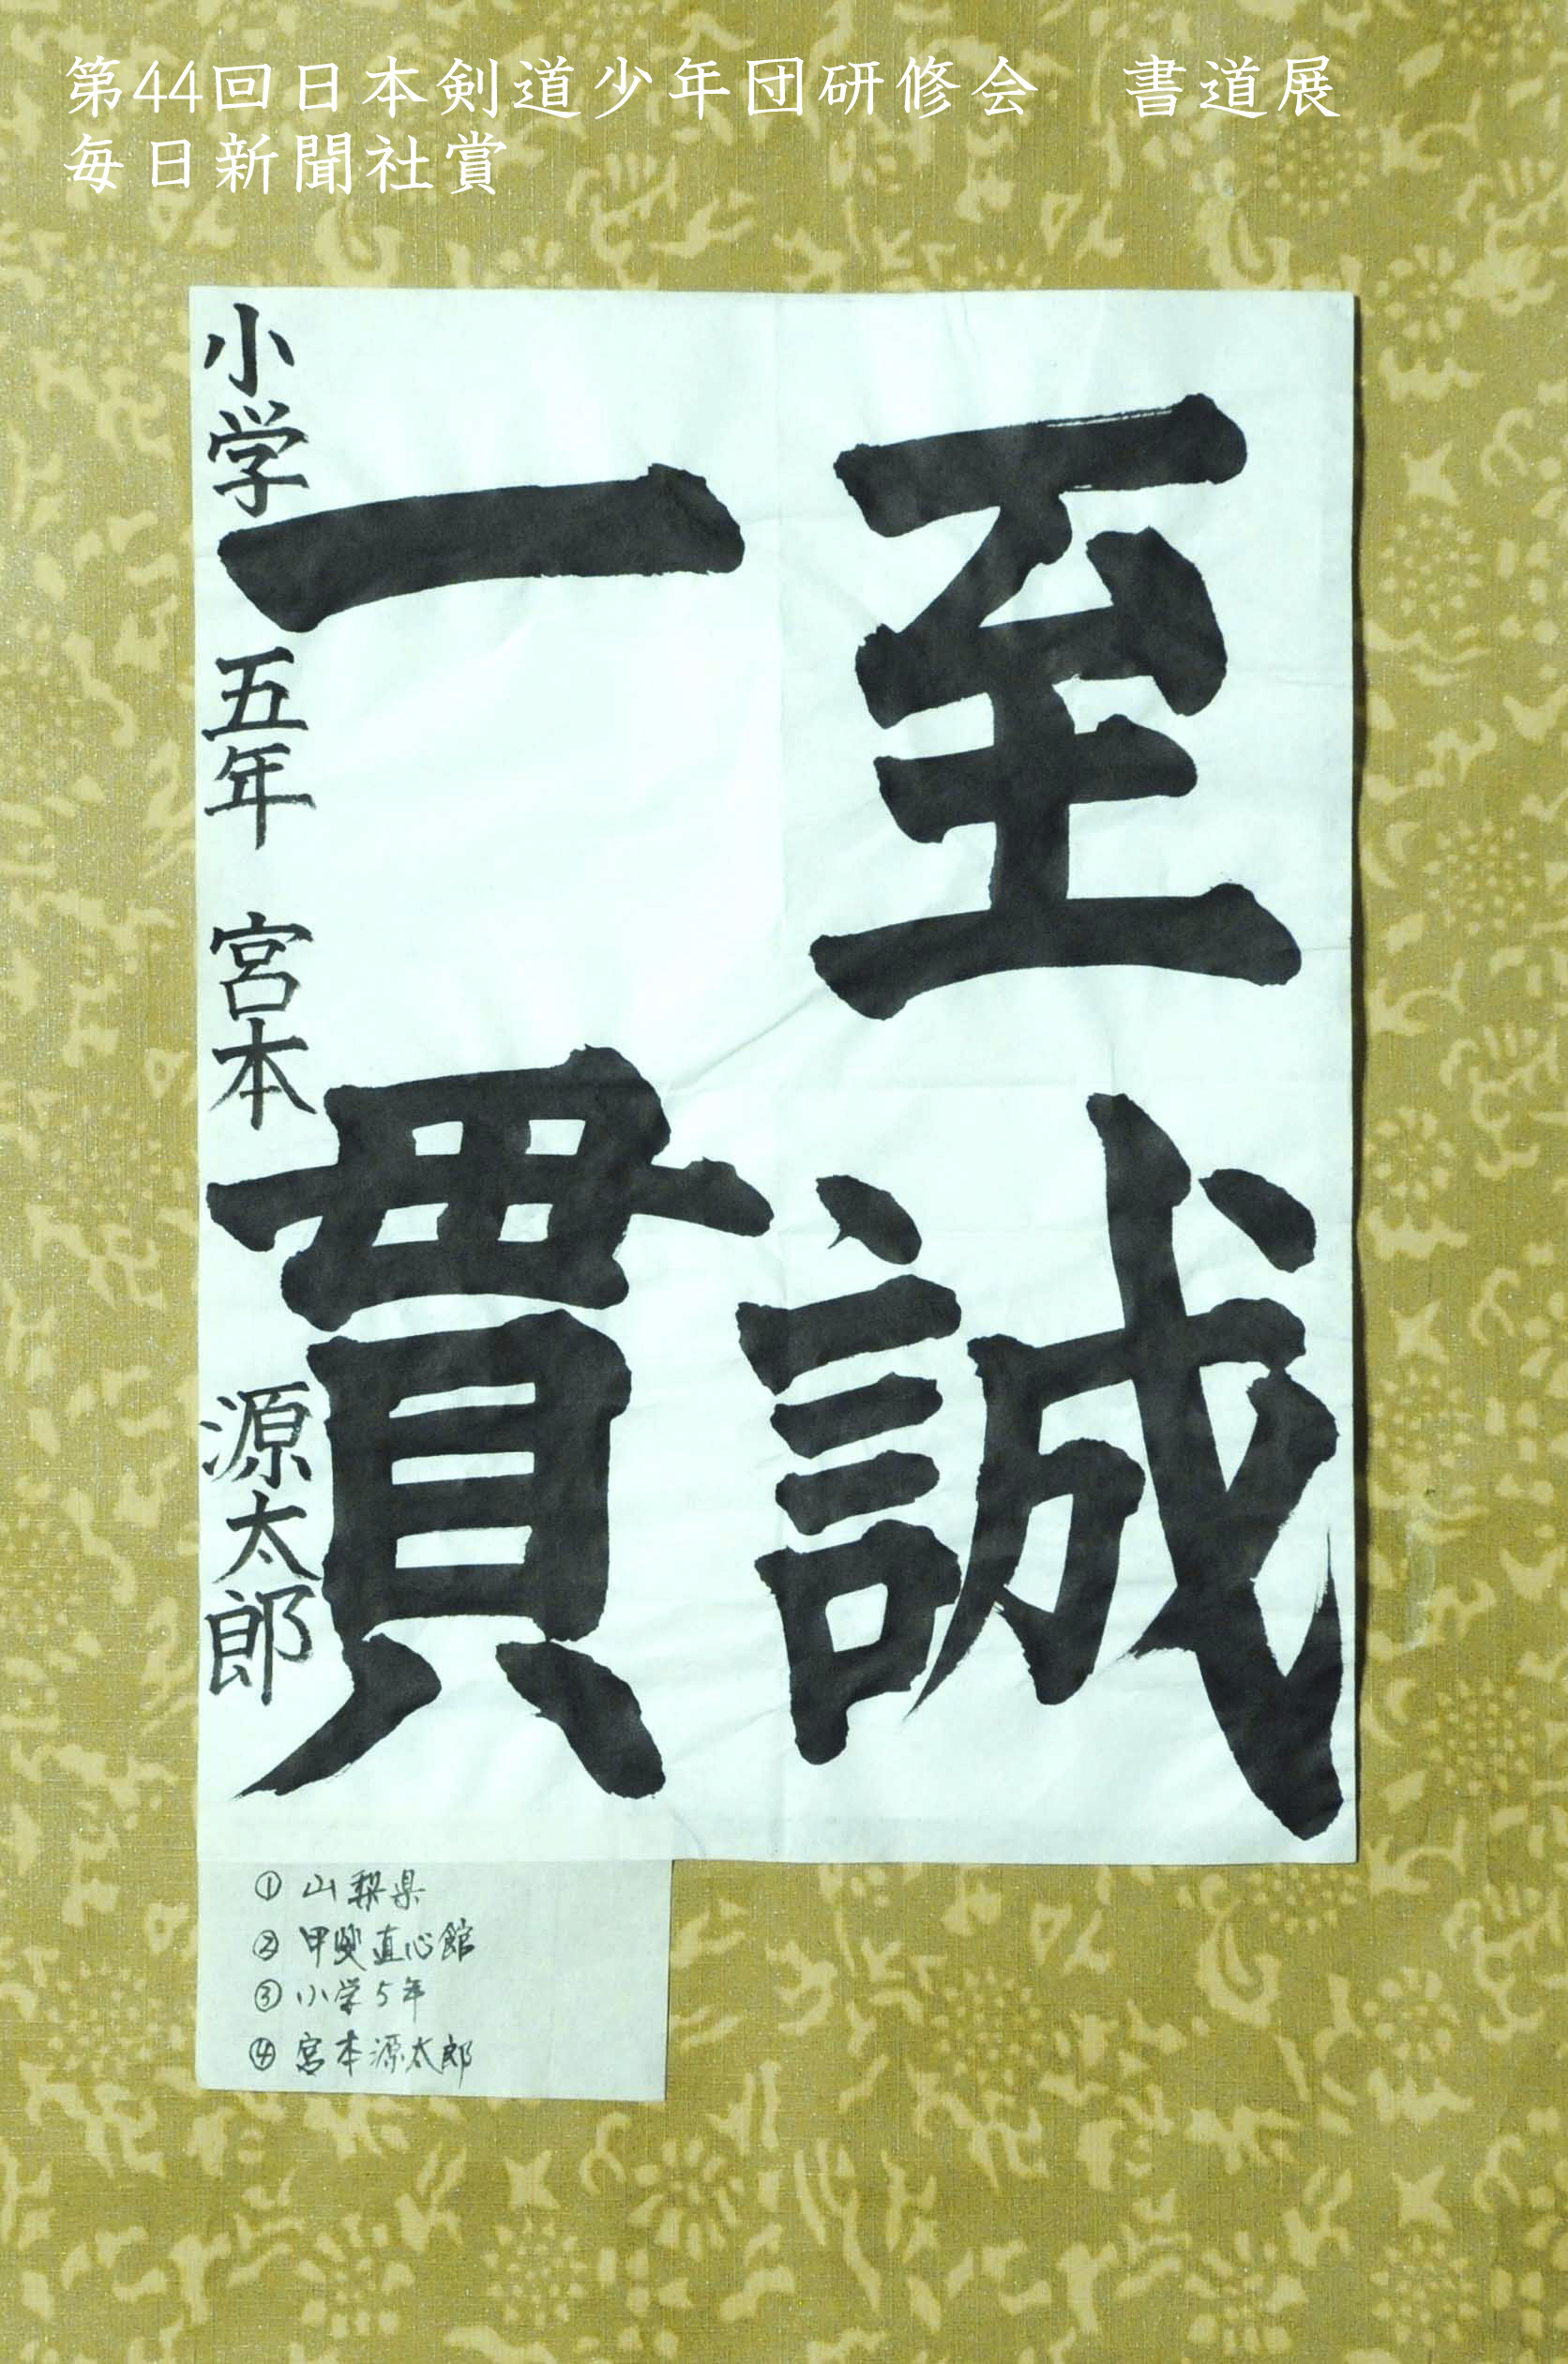 第44回日本剣道少年団研修会　書道展
毎日新聞社賞
至誠
一貫
小学五年 宮本 源太郎
① 山梨県
② 甲斐直心館
③ 小学5年
④ 宮本源太郎